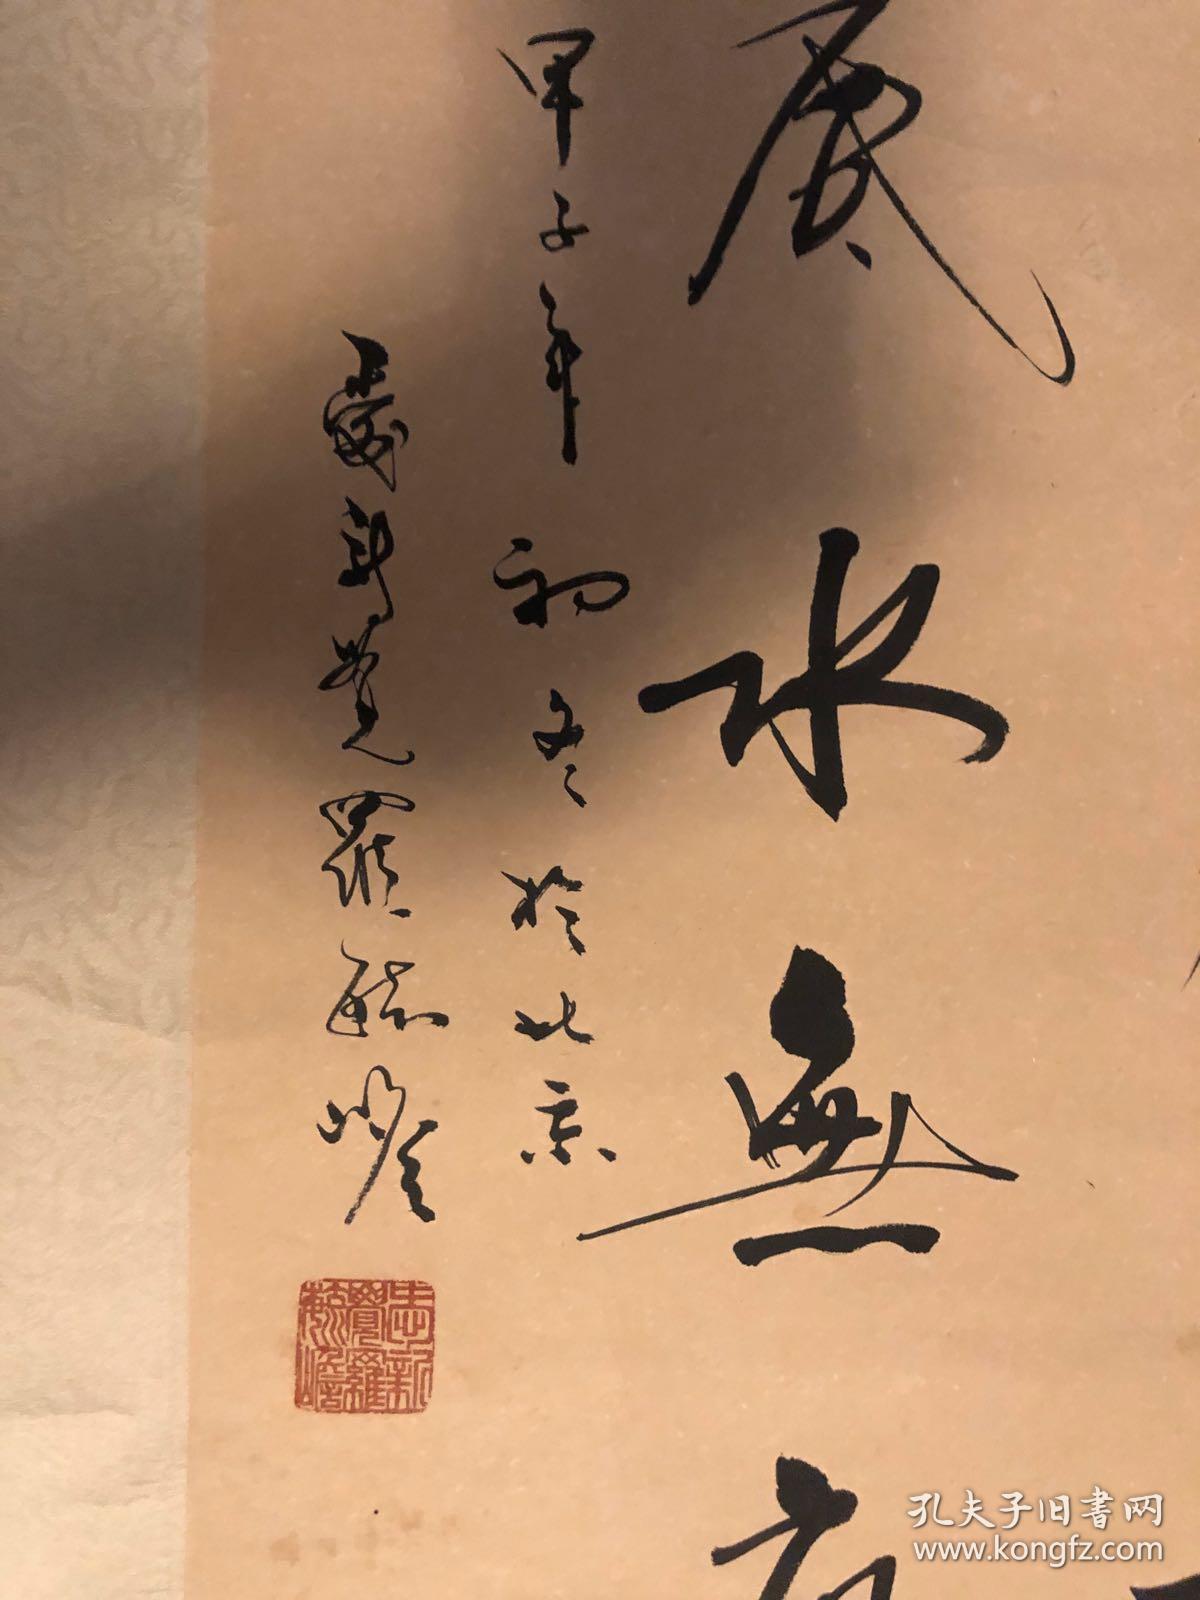 水無
甲子年初冬於北京
愛新覺羅毓嶦
愛新覺羅毓嶦
孔夫子旧書网
www.kongfz.com